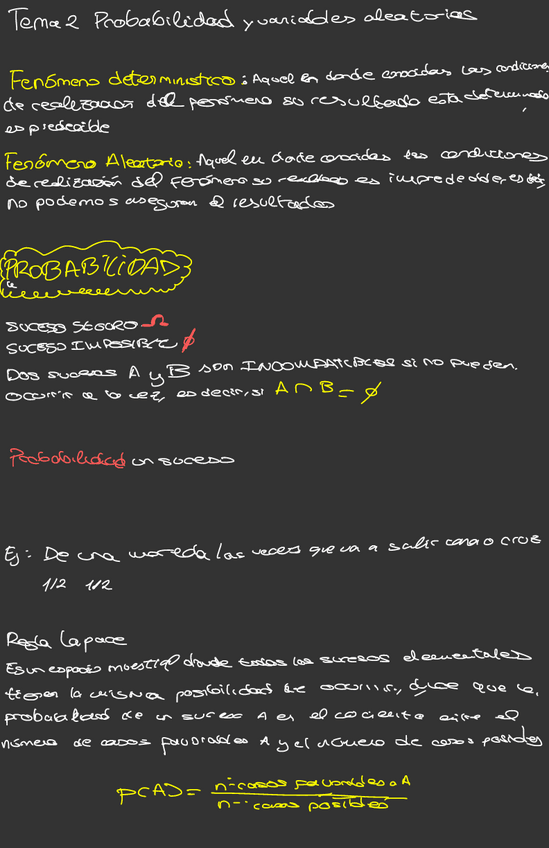 Tema 2 Probabilidad y variables aleatorias
Fenómeno determinístico: Aquel en donde conocidas las condiciones
de realización del fenómeno su resultado esta determinado,
es predecible
Fenómeno Aleatorio: Aquel en donde conocidas las condiciones
de realización del fenómeno su resultado es impredecible, es decir,
no podemos asegurar el resultado
PROBABILIDAD
SUCESO SEGURO Ω
SUCESO IMPOSIBLE ∅
DOS sucesos A y B son INCOMPATIBLES si no pueden.
ocurrir a la vez, es decir, si A ∩ B = ∅
Probabilidad un suceso
Ej: De una moneda las veces que va a salir cara o cruz
1/2 1/2
Regla Lapace
Es un espacio muestral donde todos los sucesos elementales
tienen la misma posibilidad de ocurrir, dice que la
probabilidad de un suceso A es el cociente entre el
número de casos favorables A y el número de casos posibles
P(A) = nº casos favorables a A
nº casos posibles